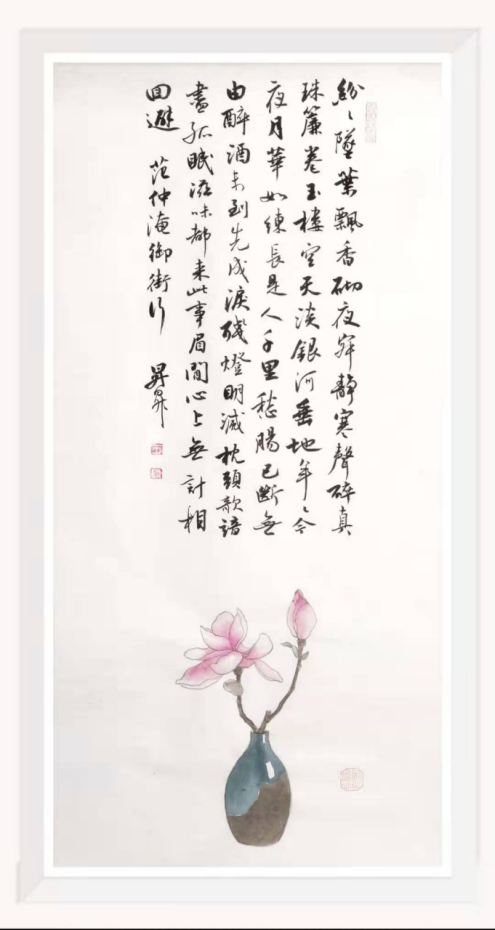 纷〻坠叶飘香砌夜寂静寒声碎真
珠簾卷玉楼空天淡银河垂地年〻今
夜月華如練長是人千里愁腸已斷無
由醉酒未到先成淚殘燈明滅枕頭欹諳
盡孤眠滋味都来此事眉間心上無計相
回避 范仲淹御街行 昇昇